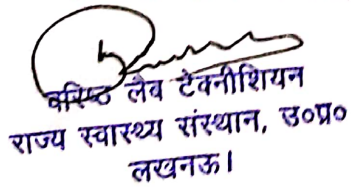 वरिष्ठ लैब टेक्नीशियन
राज्य स्वास्थ्य संस्थान, उ०प्र०
लखनऊ।